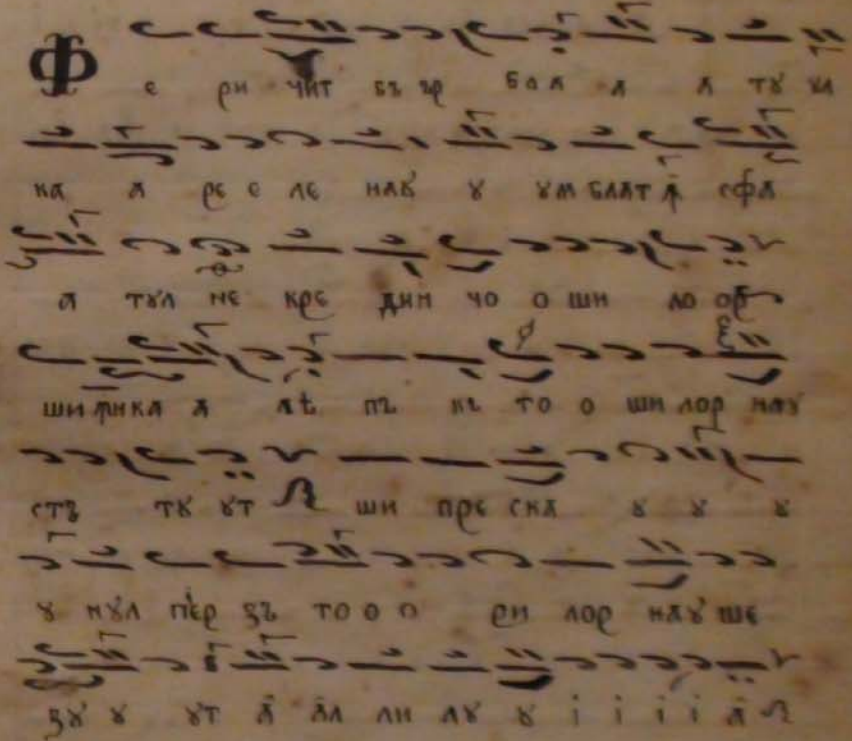 Ф е ри чит бъ ър баа а а тꙋ ꙋл
ка а ре е ле наꙋ ꙋ ꙋм блат ꙟ сфа
а тꙋл не кре дин чо о ши ло ор
ши ꙟн ка а лѣ пъ къ то о ши лор наꙋ
стъ тꙋ ꙋт ши пре ска ꙋ ꙋ ꙋ
ꙋ нꙋл пер зъ то о о ри лор наꙋ ше
зꙋ ꙋ ꙋт а ал ли лꙋ ꙋ і і і і а